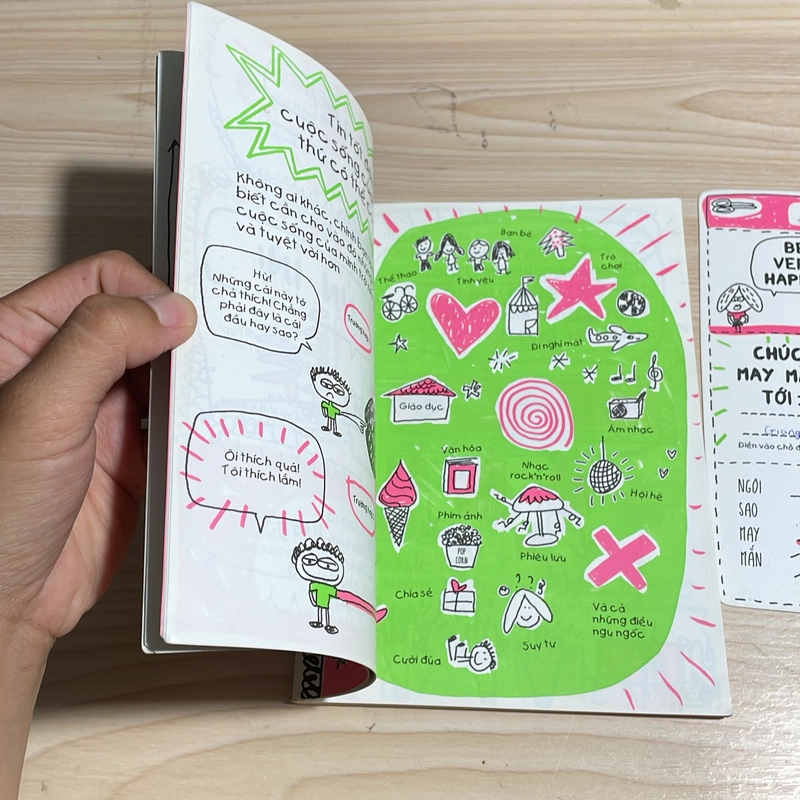 Tin tốt
cuộc sống
thứ có thể
Không ai khác, chính
biết cần cho vào đó
cuộc sống của mình
và tuyệt vời hơn
Hứ!
Những cái này tớ
chả thích! Chẳng
phải đây là cái
đầu hay sao?
Trường hợp
Ôi thích quá!
Tôi thích lắm!
Trường hợp
Bạn bè
Thể thao
Tình yêu
Trò
chơi
Đi nghỉ mát
Giáo dục
Âm nhạc
Văn hóa
Nhạc
rock'n'roll
Hội hè
Phim ảnh
POP
CORN
Phiêu lưu
Chia sẻ
Và cả
những điều
ngu ngốc
Suy tư
Cười đùa
BE
VER
HAPP
CHÚC
MAY MẮ
TỚI
Điền vào chỗ
NGÔI
SAO
MAY
MẮN